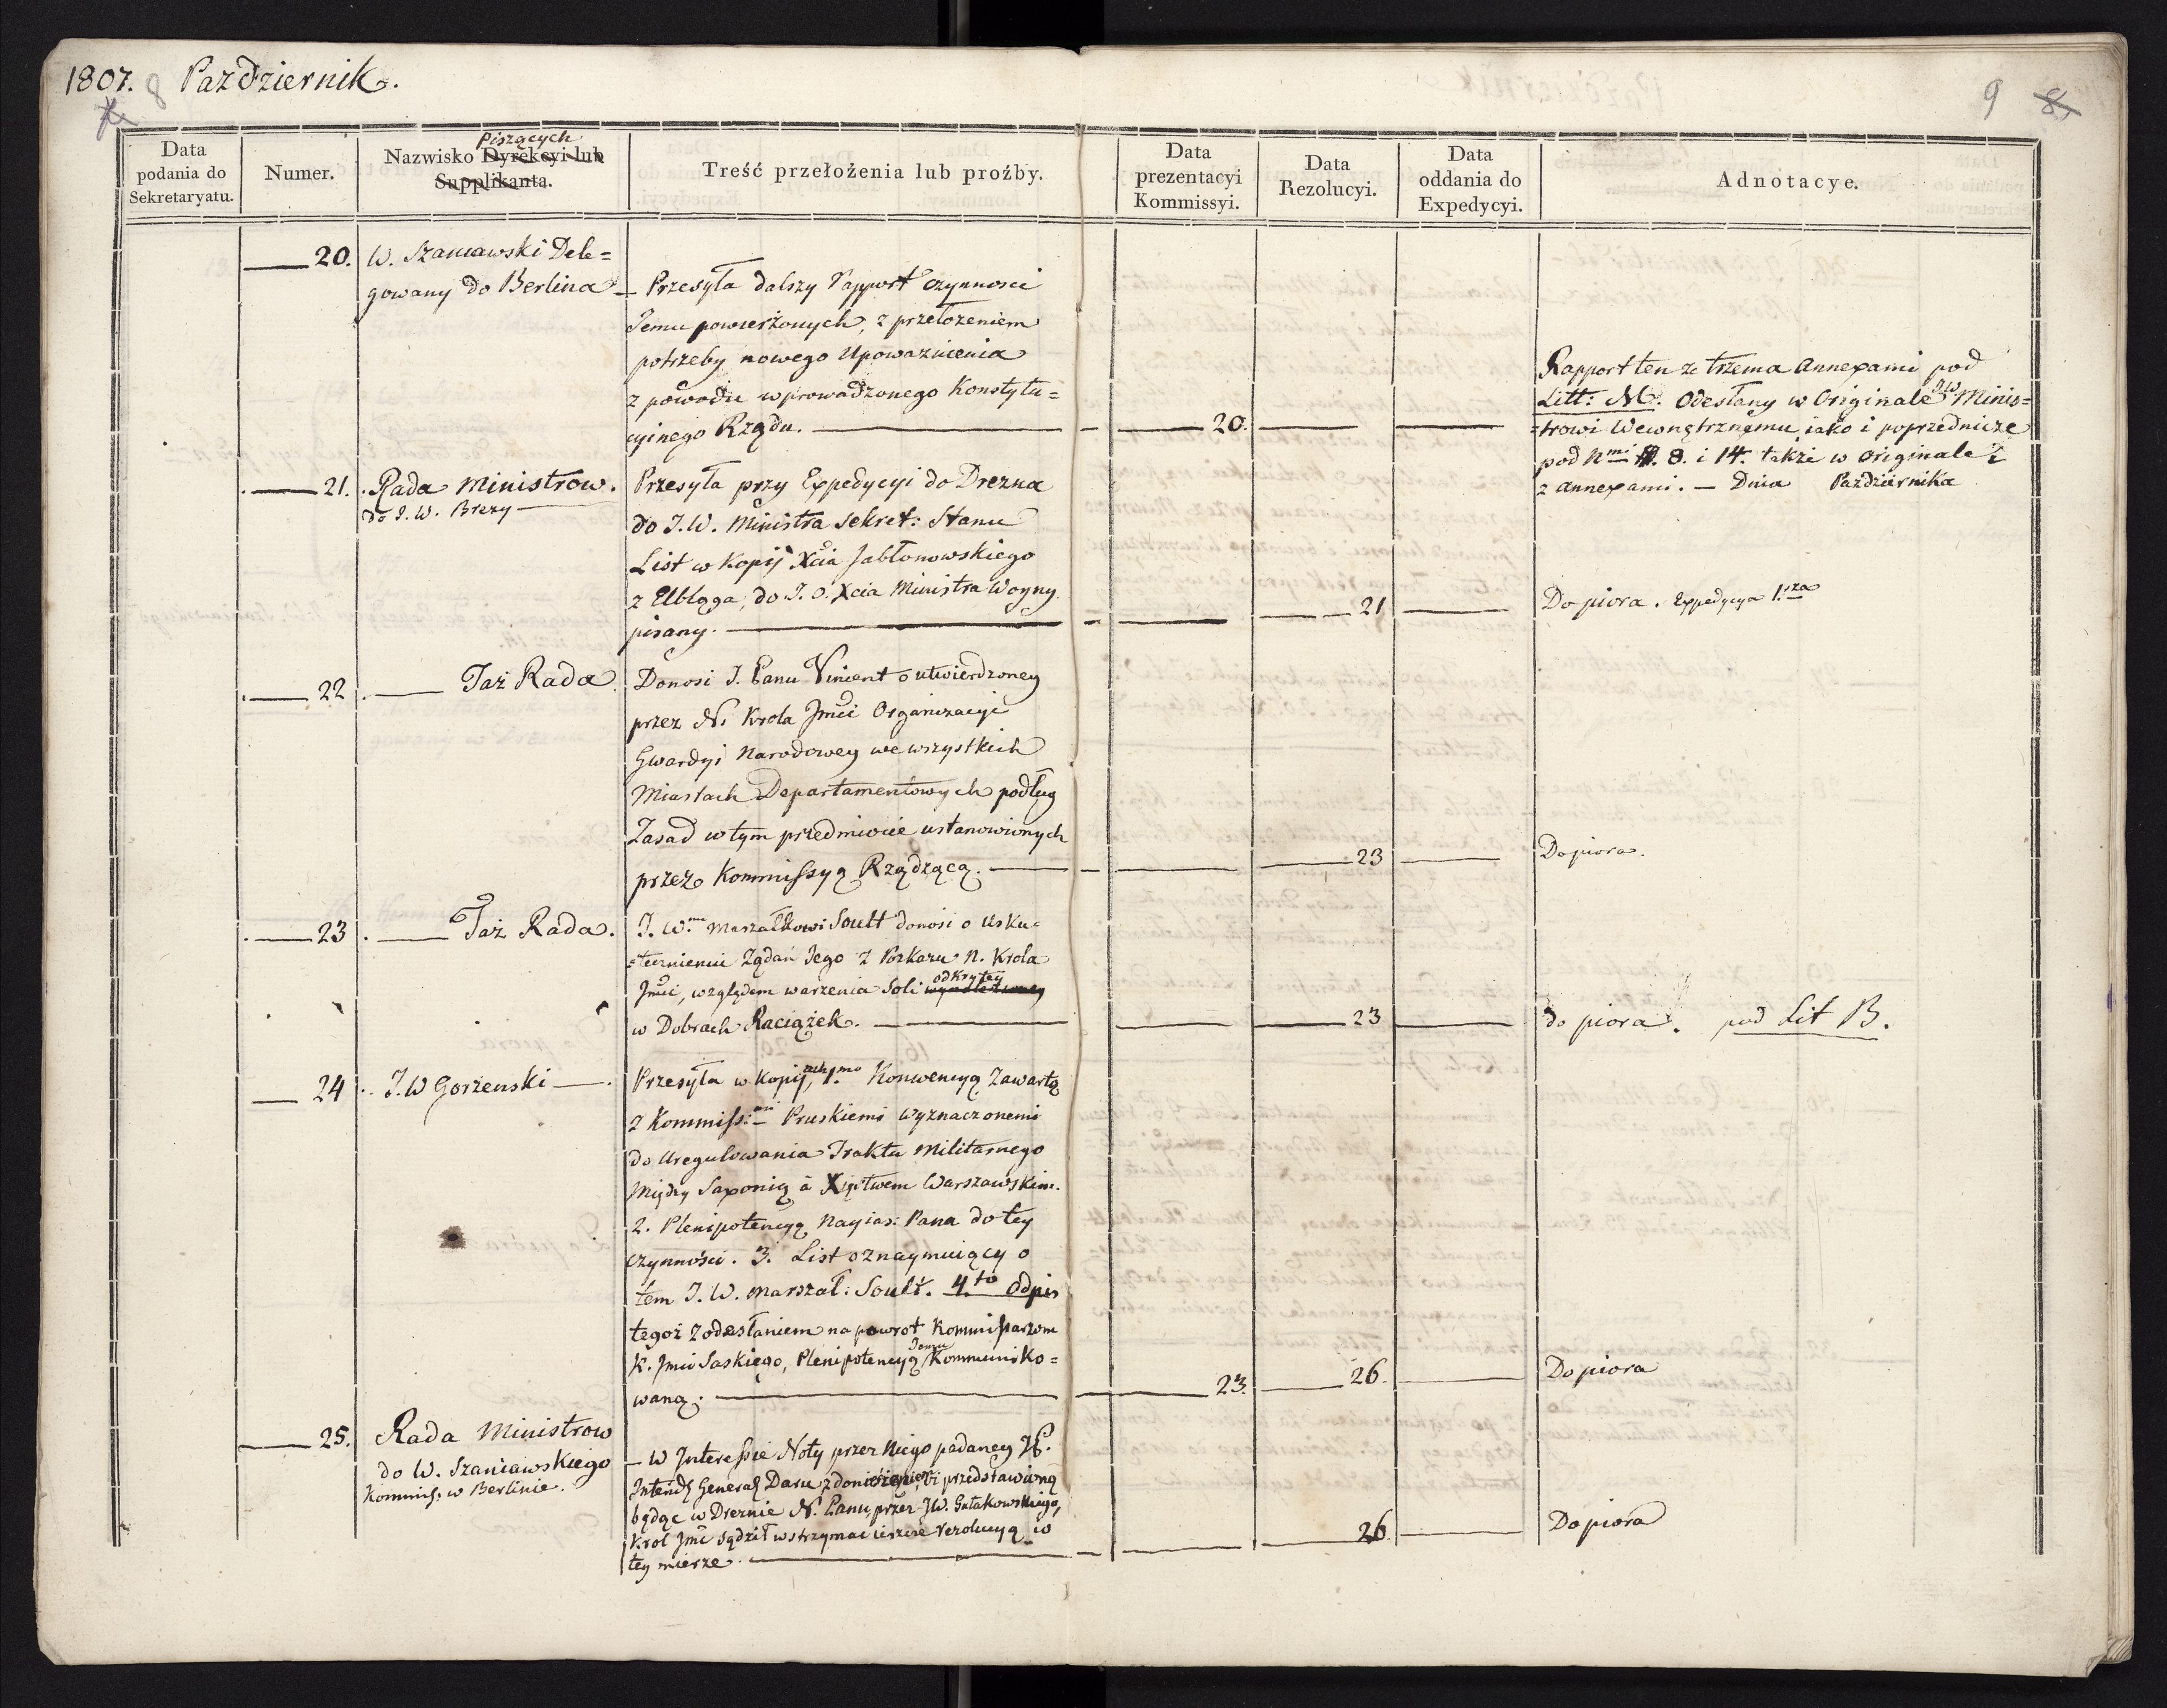 1807. Pazdziernik.
8
9 8
Data podania do Sekretaryatu.
Numer.
Piszących
Nazwisko Dyrekcyi lub Supplikanta.
Treść przełożenia lub proźby.
Data prezentacyi Kommissyi.
Data Rezolucyi.
Data oddania do Expedycyi.
Adnotacye.
20. W. Szaniawski Dele=
gowany do Berlina
Przesyła dalszy Rapport czynnosci
Jemu powierżonych, z przełożeniem
potrzeby nowego Upoważnienia
z powodu wprowadzonego Konstytu=
cyinego Rządu. 20.
Rapport ten ze trzema Annexami pod
Litt: M. Odesłany w Originale JW Minis=
=trowi Wewnętrznemu iako i poprzednicze
pod Nmi 8. i 14. także w Originale
z Annexami. — Dnia Pazdziernika
21. Rada Ministrow.
do J. W. Brezy
Przesyła przy Expedycyi do Drezna
do J. W. Ministra Sekret: Stanu
List w Kopij Xcia Jabłonowskiego
z Elbląga, do J. O. Xcia Ministra Woyny
pisany. 21
Do piora. Expedycya 1.sza
22 Taż Rada
Donosi J. Panu Vincent o utwierdzoney
przez N. Krola Jmci Organizacyi
Gwardyi Narodowey we wszystkich
Miastach Departamentowych podług
Zasad w tym przedmiocie ustanowionych
przez Kommissyą Rządzącą. 23
Do piora.
23 Taż Rada.
J. W. Marszałkowi Soult donosi o usku=
=tecznieniu Żądań Jego z Rozkazu N. Krola
Jmci, względem warzenia Soli odkrytey
w Dobrach Raciążek. 23
do piora. pod Lit B.
24 J. W Gorzenski
Przesyła w kopij, 1.mo Konwencyą Zawartą
z Kommiss: Pruskiemi wyznaczonemi
do Uregulowania Traktu Militarnego
Między Saxonią à Xięstwem Warszawskim.
2. Plenipotencyą Nayias: Pana do tey
czynności. 3. List oznaymuiący o
tem J. W. Marszał: Soult. 4.to Odpis
tegoż z odesłaniem na powrot Kommissarzom
K. Jmci Saskiego, Plenipotencyą Jemu Kommuniko=
waną. 23. 26.
Do piora
25. Rada Ministrow
do W. Szaniawskiego
Kommiss: w Berlinie.
— W Interessie Noty przez Niego podaney JP.
Intend: General Daru z doniesieniem, iż przedstawioną
będąc w Dreznie N. Panu, przez JW. Gutakowskiego,
Krol Jmć sądził wstrzymać ieszcze rezolucyą w
tey mierze. 26
Do piora